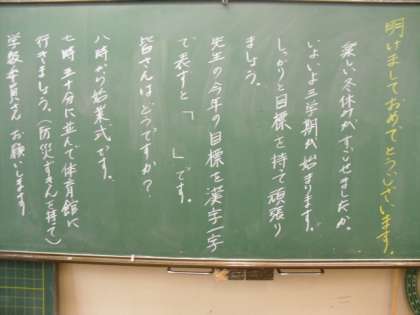 明けましておめでとうございます。
楽しい冬休みがすごせましたか。
いよいよ三学期が始まります。
しっかりと目標を持て頑張り
ましょう。
先生の今年の目標を漢字一字
で表すと「　」です。
皆さんはどうですか?
八時から始業式です。
七時五十分に並んで体育館に
行きましょう。(防災ずきんを持て)
学級委員さんお願いします